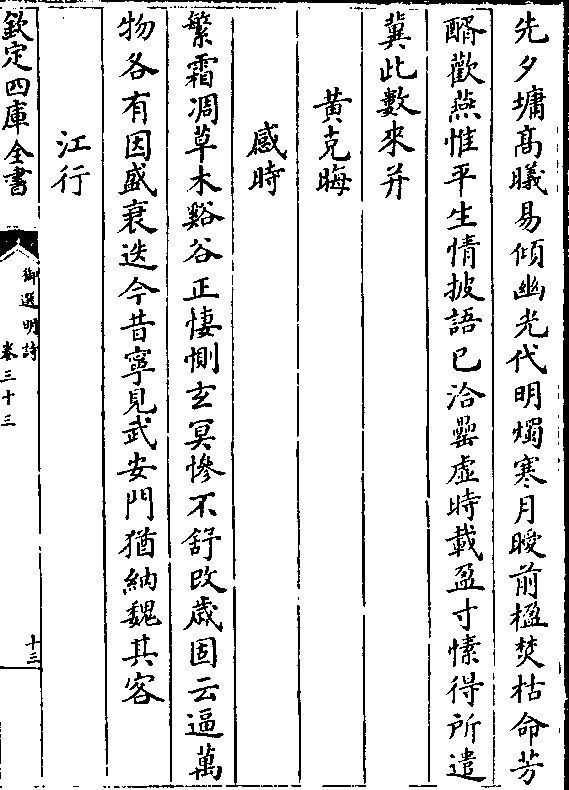 先夕墉高曦易傾幽光代明燭寒月曖前楹焚枯命芳
醑歡燕惟平生情披語已洽罍虚時載盈寸愫得所遣
冀此數來并
黄克晦
感時
繁霜凋草木谿谷正悽惻玄冥慘不舒改歲固云逼萬
物各有因盛衰迭今昔寧見武安門猶納魏其客
江行
欽定四庫全書
御選明詩
卷三十三
十三